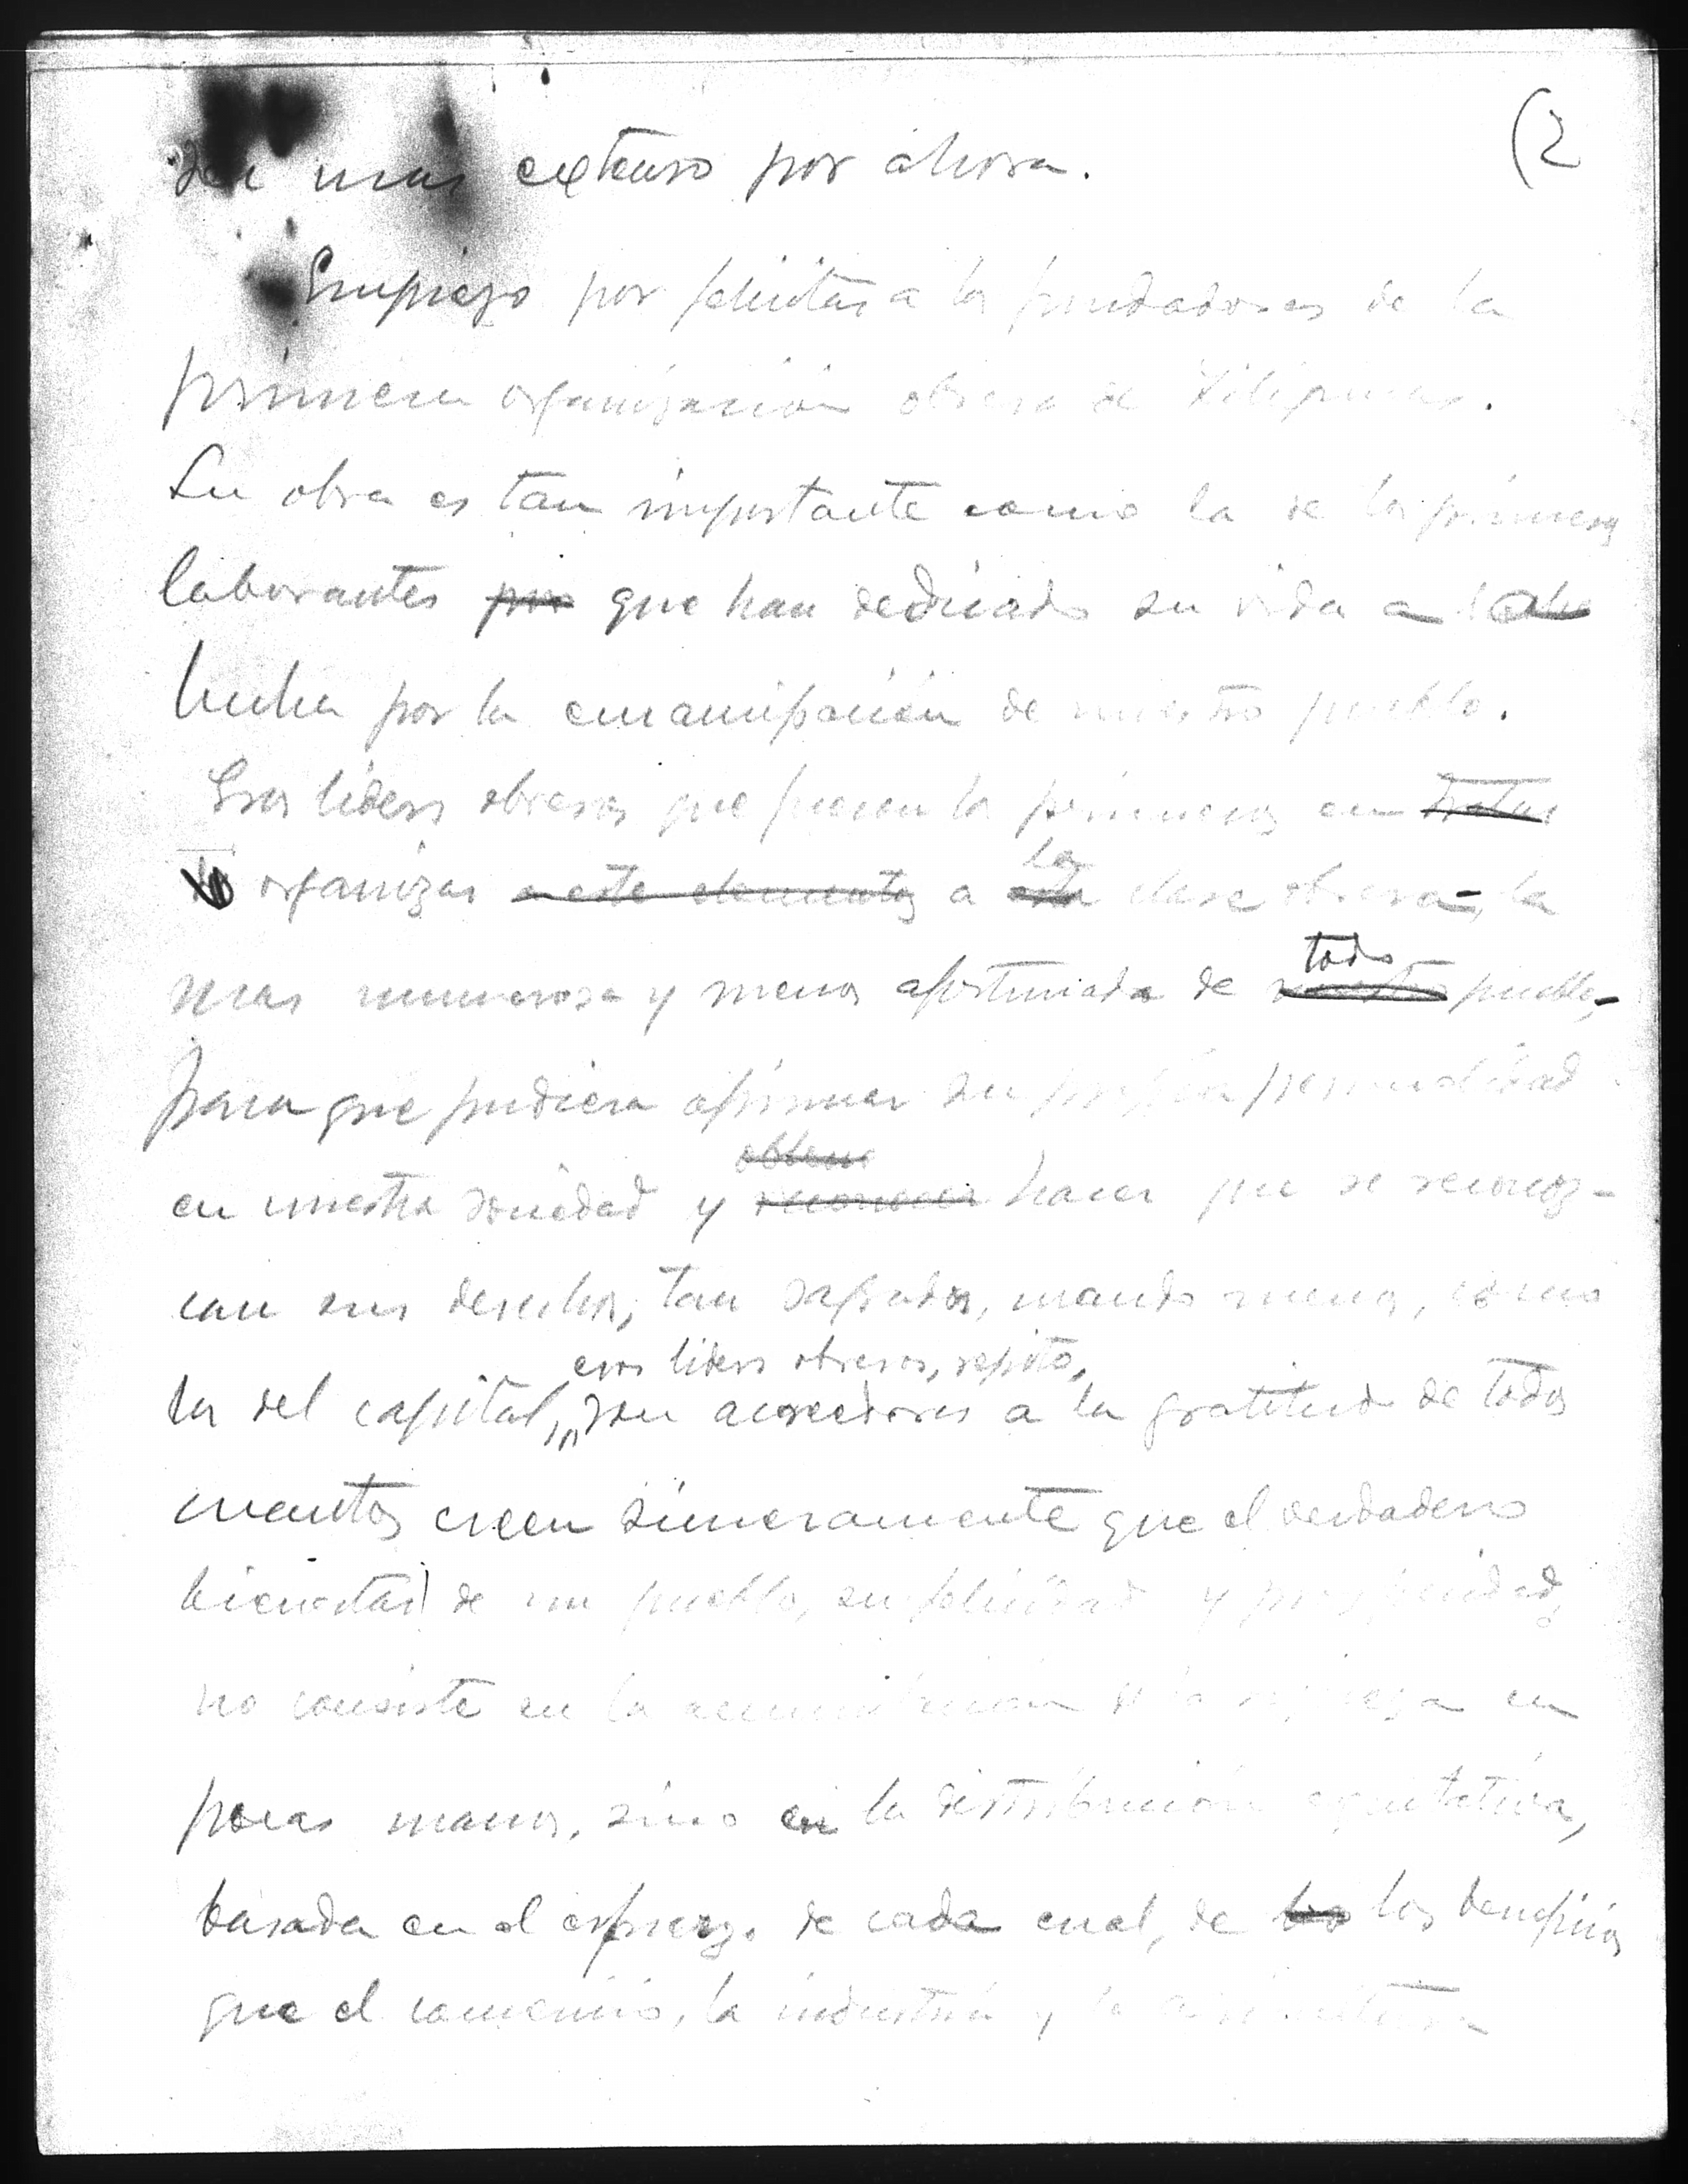 (2
ser mas extenso por ahora.
Empiezo por felicitar a los fundadores de la
primera organización obrera de Filipinas.
Su obra es tan importante como la de los primeros
laborantes que han dedicado su vida a la
lucha por la emancipación de nuestro pueblo.
Esos liders obreros que fueron los primeros en tratar
organizar a este elemento a esta clase obrera-, la
la
mas numerosa y menos afortunada de nuestro pueblo,-
todo
para que pudiera afirmar su propia personalidad
en nuestra sociedad y reconocer hacer que se reconoz-
obtener
can sus derechos, tan sagrados, cuando menos, como
los del capital, son acreedores a la gratitud de todos
esos liders obreros, repito,
cuantos creen sinceramente que el verdadero
bienestar de un pueblo, su felicidad y prosperidad,
no consiste en la acumulación de la riqueza en
pocas manos, sino en la distribución equitativa,
basada en el esfuerzo de cada cual, de los beneficios
que el comercio, la industria y la agricultura